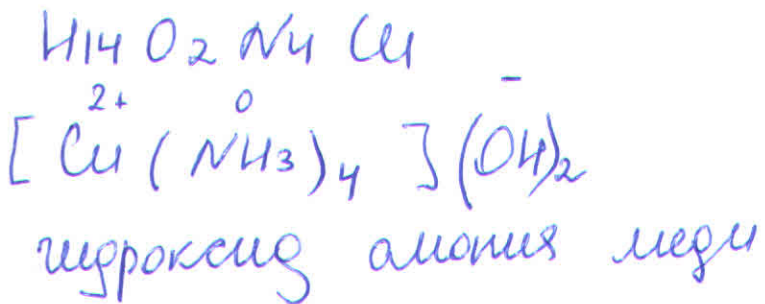 H14 O2 N4 Cu
[Cu²⁺(NH₃)⁰₄](OH)⁻₂
гидроксид амония меди